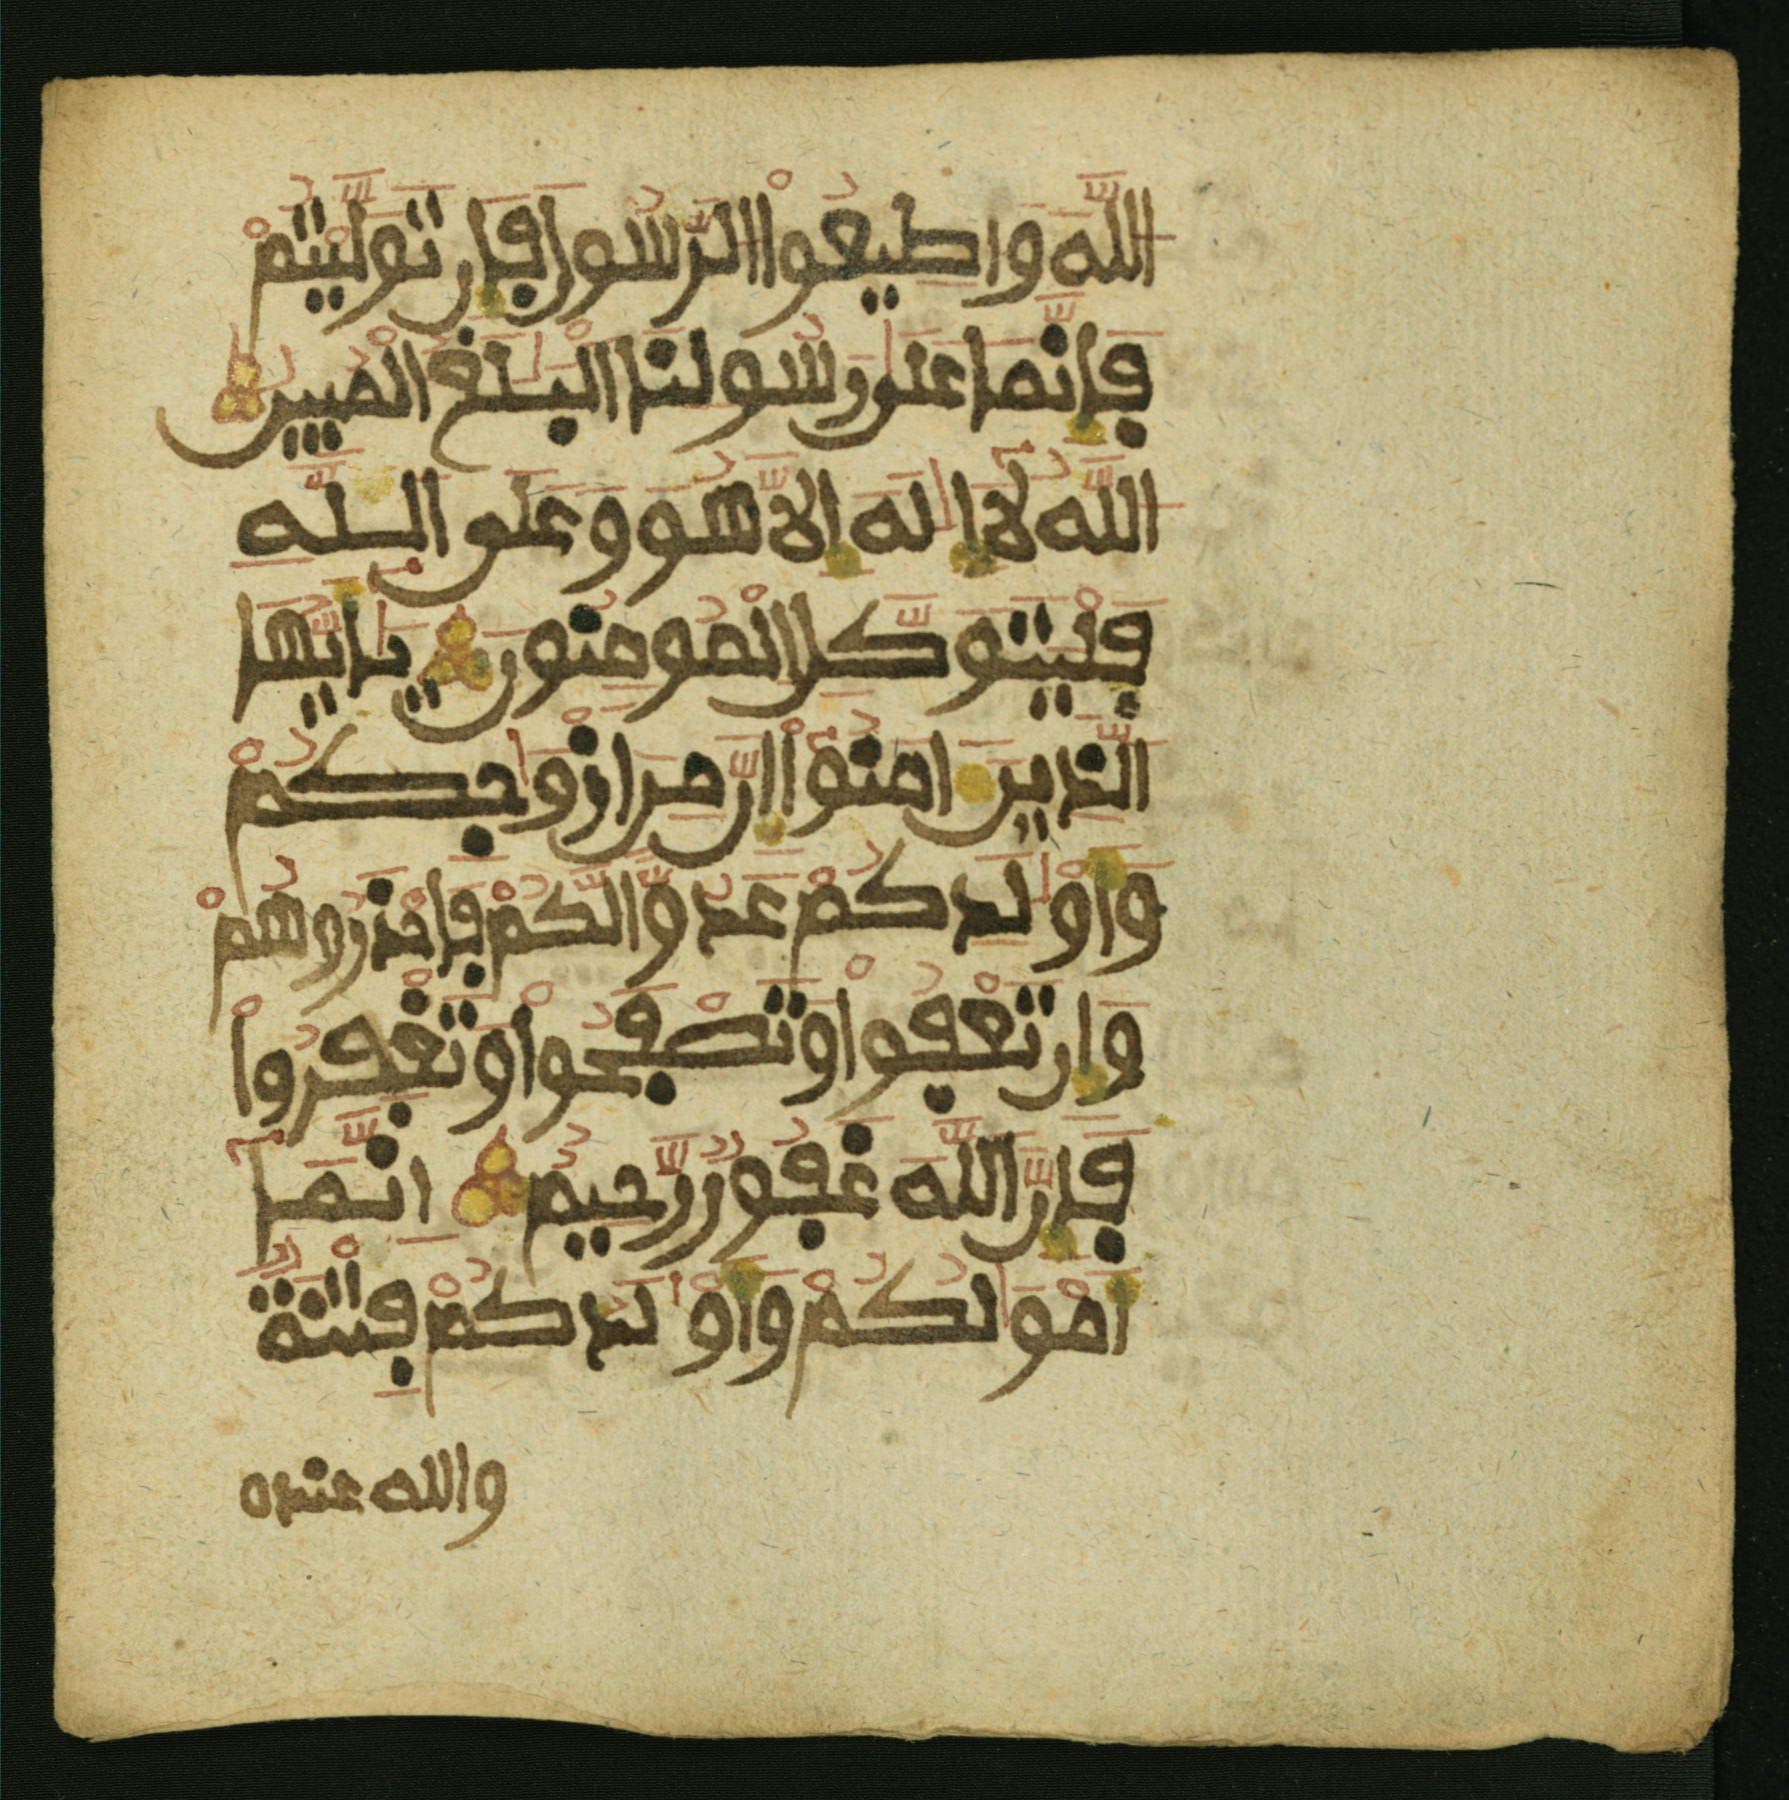 اللَّهَ وَأَطِيعُواْ الرَّسُولَ فَإِن تَوَلَّيْتُمْ
فَإِنَّمَا عَلَىٰ رَسُولِنَا الْبَلَٰغُ الْمُبِينُ
اللَّهُ لَآ إِلَٰهَ إِلَّا هُوَ وَعَلَى اللَّهِ
فَلْيَتَوَكَّلِ الْمُومِنُونَ يَٰأَيُّهَا
الَّذِينَ ءَامَنُوٓاْ إِنَّ مِنْ أَزْوَٰجِكُمْ
وَأَوْلَٰدِكُمْ عَدُوّاً لَّكُمْ فَاحْذَرُوهُمْ
وَإِن تَعْفُواْ وَتَصْفَحُواْ وَتَغْفِرُواْ
فَإِنَّ اللَّهَ غَفُورٌ رَّحِيمٌ إِنَّمَآ
أَمْوَٰلُكُمْ وَأَوْلَٰدُكُمْ فِتْنَةٌ
والله عنده